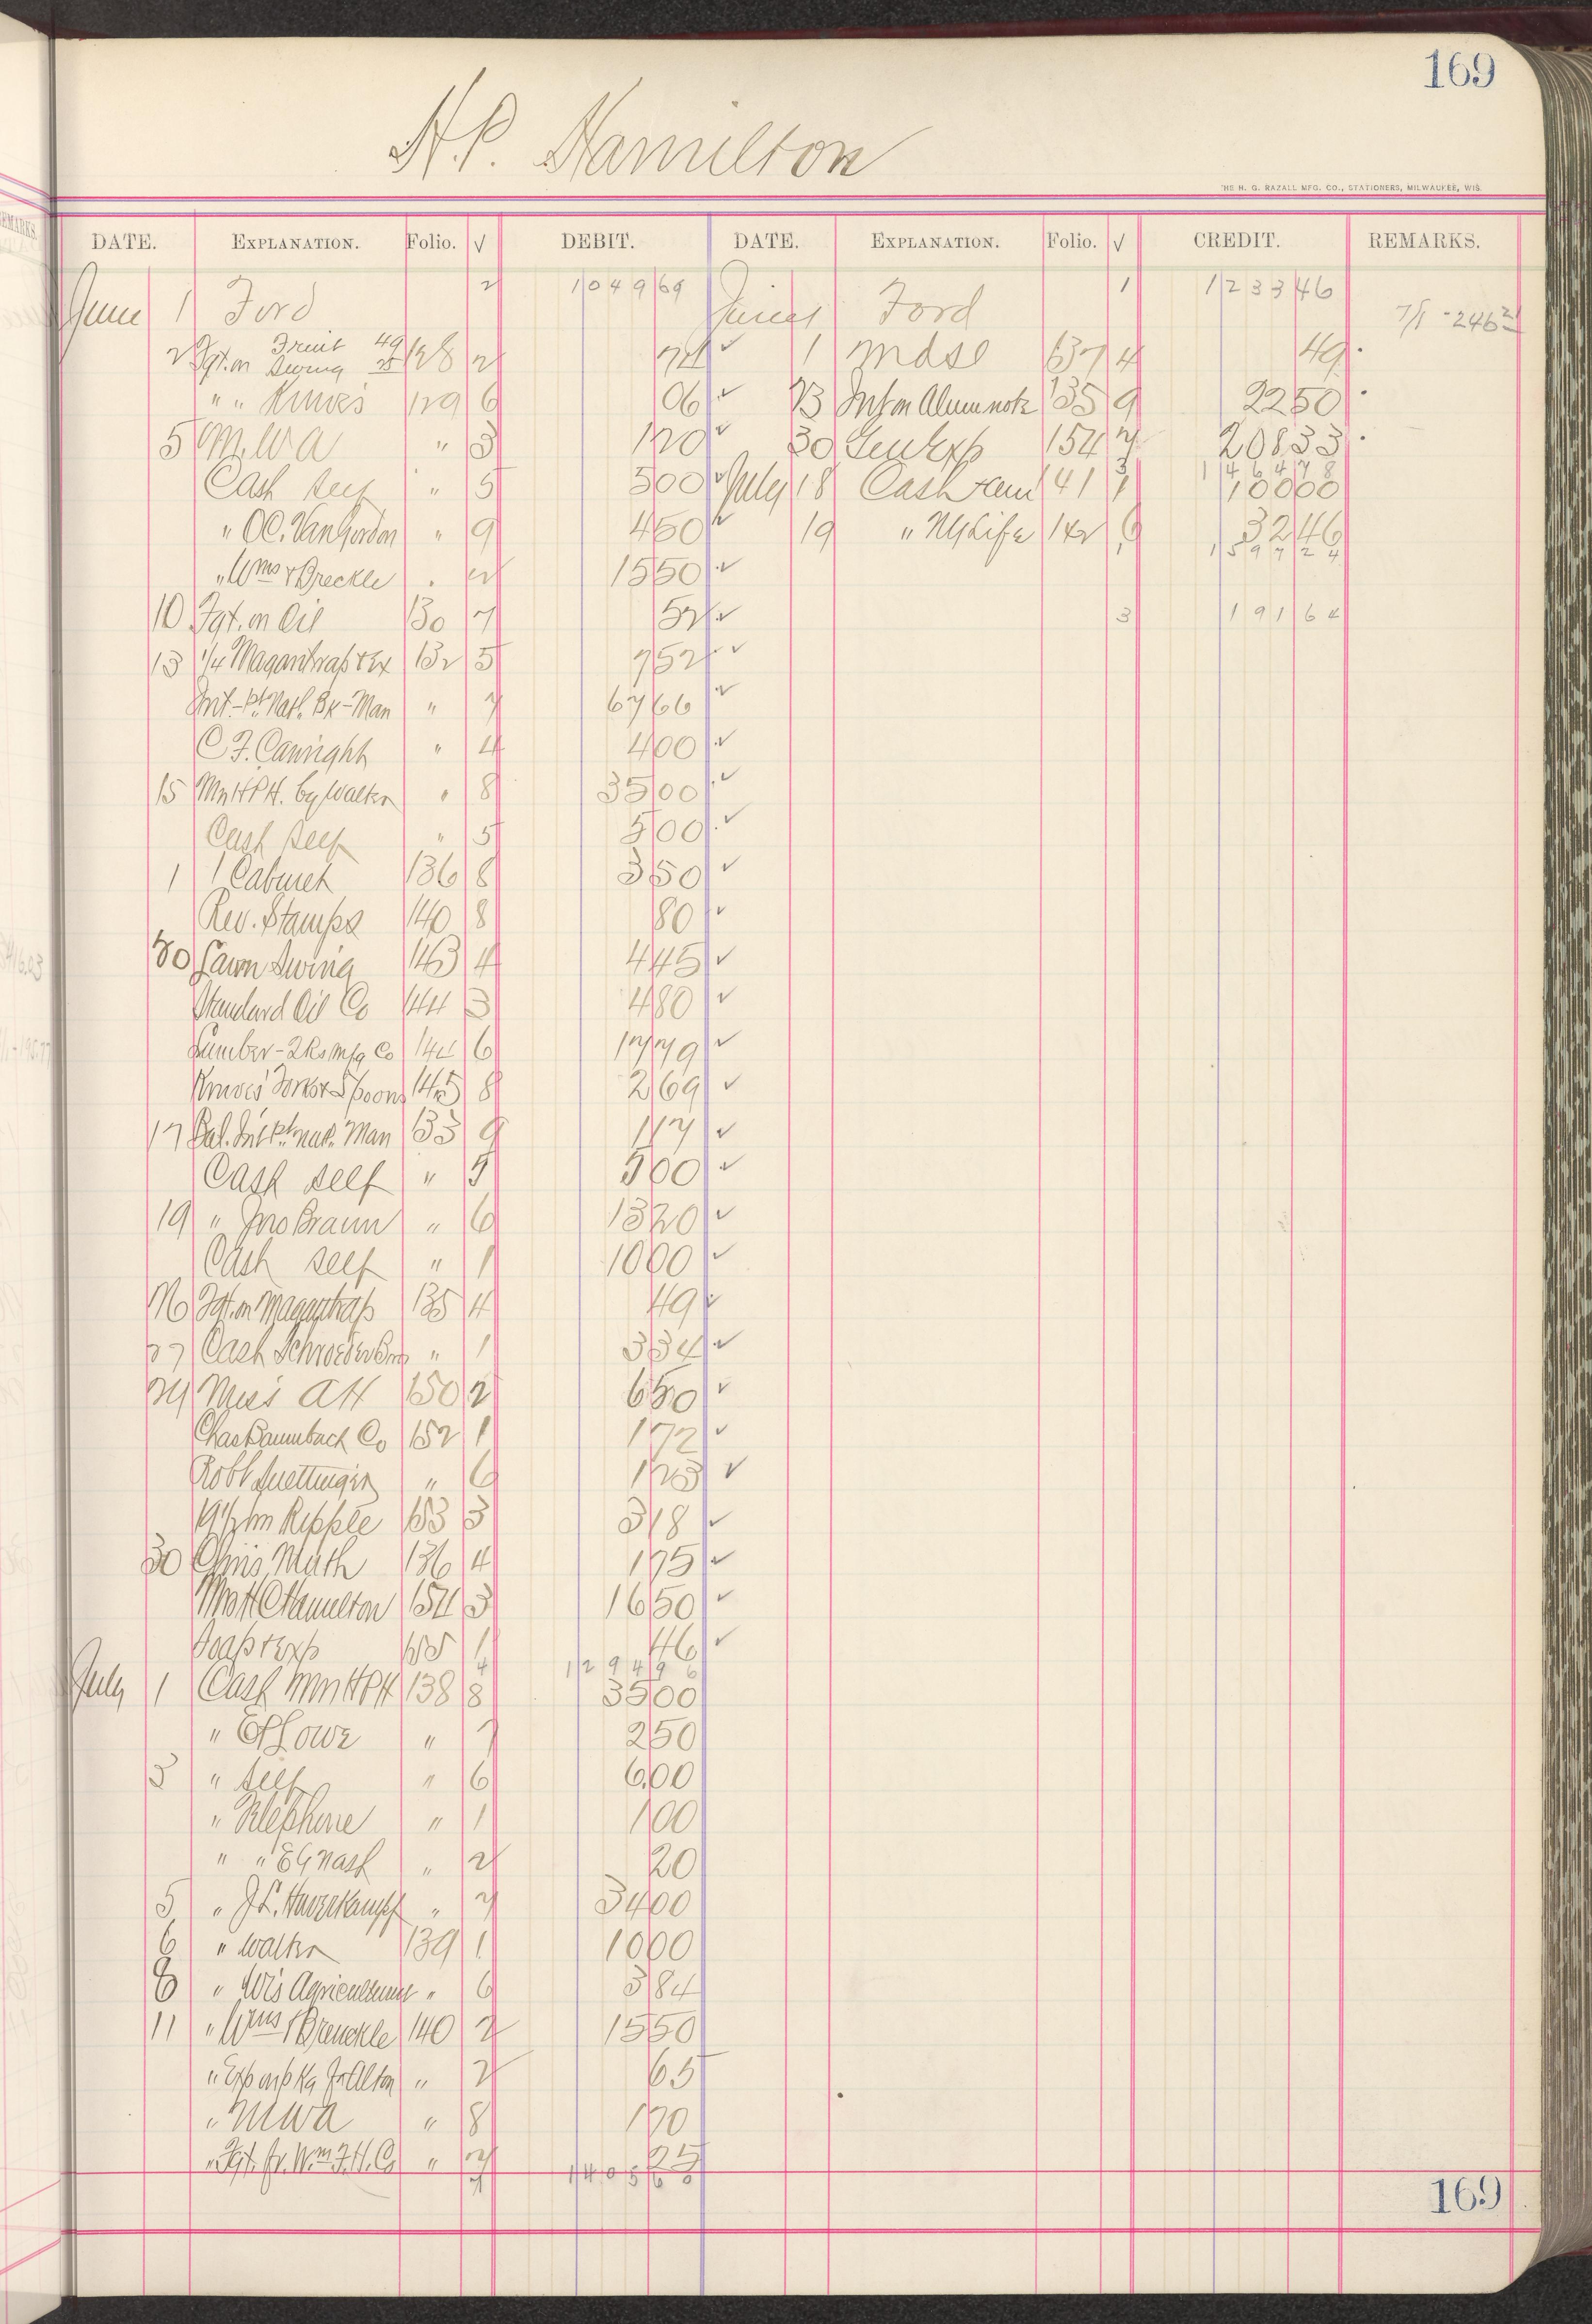 169
H.P. Hamilton
THE H. G. RAZALL MFG. CO., STATIONERS, MILWAUKEE, WIS.
DATE. EXPLANATION. Folio. √ DEBIT. DATE. EXPLANATION. Folio. √ CREDIT. REMARKS.
June 1 Ford 2 1049 69 June 1 Ford 1 1233 46
7/1 - 246 21
2 Fgt. on Fruit 49 Swing 25 128 2 74 ✓ 1 Mdse 137 4 49
" " Knives 129 6 06 ✓ 23 Int on Alum note 135 9 22 50
5 M.W.A " 3 1 20 ✓ 30 Genl Exp 154 7 208 33
3 1464 78
Cash self " 5 5 00 ✓ July 18 Cash 141 1 100 00
" O.C. Van Gordon " 9 4 50 ✓ 19 " NY Life 142 6 32 46
1 1597 24
" Wms & Breckle " 2 15 50 ✓
10 Fgt. on Oil 130 7 52 ✓ 3 191 64
13 1/4 Magan trap & Ex 132 5 7 52 ✓
Int. - 1st Natl. Bk - Man " 7 67 66 ✓
C F. Canright " 4 4 00 ✓
15 Mrs H P H. by Walter " 8 35 00 ✓
Cash self " 5 5 00 ✓
1 1 Cabinet 136 8 3 50 ✓
Rev. Stamps 140 8 80 ✓
30 Lawn Swing 143 4 4 45 ✓
Standard Oil Co 144 3 4 80 ✓
Lumber - 2 Rs Mfg Co 144 6 17 79 ✓
Knives Forks & Spoons 145 8 2 69 ✓
17 Bal. Int 1st nat. Man 133 9 1 17 ✓
Cash self " 5 5 00 ✓
19 " Jno Braun " 6 13 20 ✓
Cash self " 1 10 00 ✓
26 Fgt. on Magan trap 135 4 49 ✓
27 Cash Schroeder Bros " 1 3 34 ✓
24 Miss AH 150 2 6 50 ✓
Chas Baumbach Co 152 1 1 72 ✓
Robt Suettinger " 6 1 23 ✓
19 1/2 hm Ripple 153 3 3 18 ✓
30 Chris Muth 136 4 1 75 ✓
Mrs H C Hamilton 154 3 16 50 ✓
Soap & Exp 155 1 46 ✓
4 1294 96
July 1 Cash Mrs H P H 138 8 35 00
" E P Lowe " 7 2 50
3 " self " 6 6 00
" Telephone " 1 1 00
" " E G Nash " 2 20
5 " J L. Haverkampf " 7 34 00
6 " Walter 139 1 10 00
8 " Wis Agriculturist " 6 3 84
11 " Wms & Breuckle 140 2 15 50
" Exp on pkg Alton " 2 65
" MWA " 8 1 20
" Fgt. fr. Wm F.H. Co " 7 25
7 1405 60
169